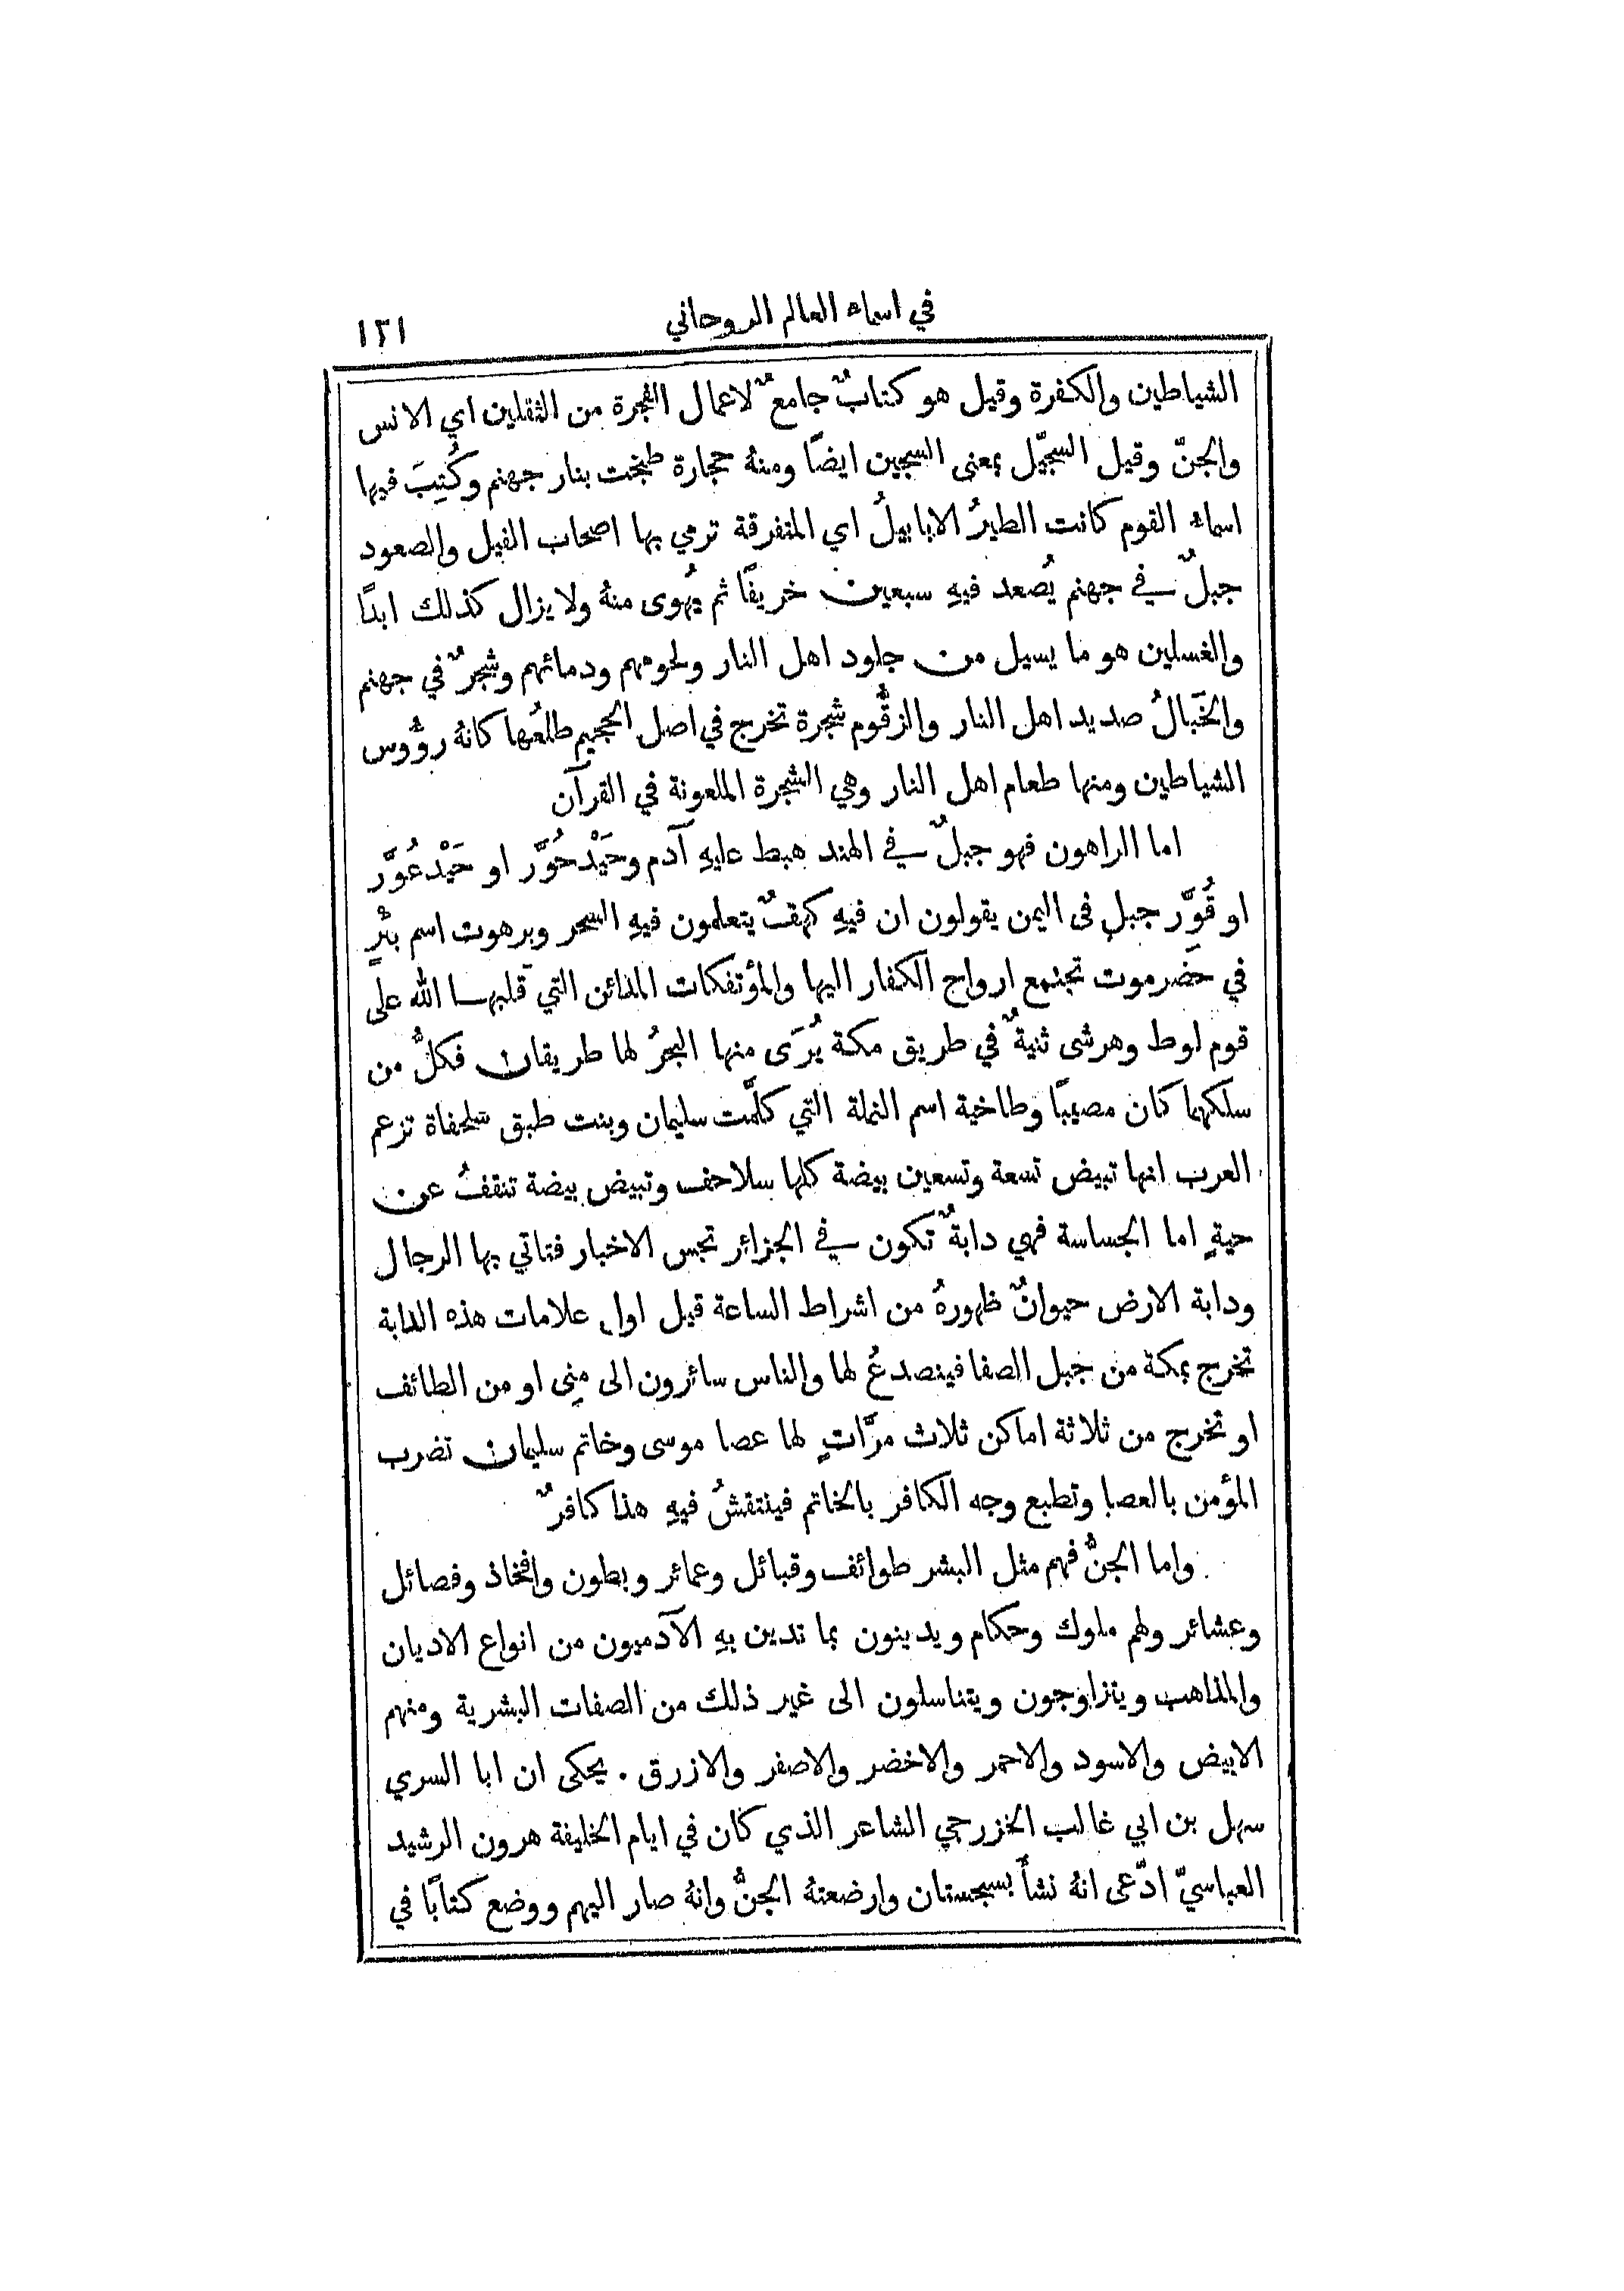 في اسماء العالم الروحاني
١٢١
الشياطين والكفرة وقيل هو كتابٌ جامعٌ لاعمال الفجرة من الثقلين اي الانس
والجنّ وقيل السجّيل بمعنى السجين ايضًا ومنهُ حجارة طبخت بنار جهنم وكُتِبَ فيها
اسماء القوم كانت الطيرُ الابابيلُ اي المتفرقة ترمي بها اصحاب الفيل والصعود
جبلٌ في جهنم يُصعد فيهِ سبعين خريفًا ثم يُهوى منهُ ولا يزال كذلك ابدًا
والغسلين هو ما يسيل من جلود اهل النار ولحومهم ودمائهم وشجرٌ في جهنم
والخَبالُ صديد اهل النار والزقُّوم شجرة تخرج في اصل الجحيم طلعُها كانهُ رؤُوس
الشياطين ومنها طعام اهل النار وهي الشجرة الملعونة في القرآن
اما الراهون فهو جبلٌ في الهند هبط عليهِ آدم وحَيْدحُوَّر او حَيْدعُوَّر
او قُوَّر جبلٍ فى اليمن يقولون ان فيهِ كهفٌ يتعلمون فيهِ السحر وبرهوت اسم بئْرٍ
في حَضرِموت تجتمع ارواح الكفار اليها والمؤتفكات المدائن التي قلبها الله على
قوم لوط وهرشى ثنيةٌ في طريق مكة يُرَى منها البحرُ لها طريقان فكلُّ من
سلكهما كان مصيبًا وطاخية اسم النملة التي كلَّمت سليمان وبنت طبق سلحفاة تزعم
العرب انها تبيض تسعة وتسعين بيضة كلها سلاحف وتبيض بيضة تنقفُ عن
حيةٍ اما الجساسة فهي دابةٌ تكون في الجزائر تجس الاخبار فتاتي بها الرجال
ودابة الارض حيوانٌ ظهورهُ من اشراط الساعة قبل اول علامات هذه الدابة
تخرج بمكة من جبل الصفا فينصدعُ لها والناس سائرون الى مِنى او من الطائف
او تخرج من ثلاثة اماكن ثلاث مرَّاتٍ لها عصا موسى وخاتم سليمان تضرب
المؤمن بالعصا وتطبع وجه الكافر بالخاتم فينتقشُ فيهِ هذا كافرٌ
واما الجنُّ فهم مثل البشر طوائف وقبائل وعمائر وبطون وافخاذ وفصائل
وعشائر ولهم ملوك وحكام ويدينون بما تدين بهِ الآدميون من انواع الاديان
والمذاهب ويتزاوجون ويتناسلون الى غير ذلك من الصفات البشرية ومنهم
الابيض والاسود والاحمر والاخضر والاصفر والازرق . يحكى ان ابا السري
سهل بن ابي غالب الخزرجي الشاعر الذي كان في ايام الخليفة هرون الرشيد
العباسيّ ادّعى انهُ نشأَ بسجستان وارضعتهُ الجنُّ وانهُ صار اليهم ووضع كتابًا في